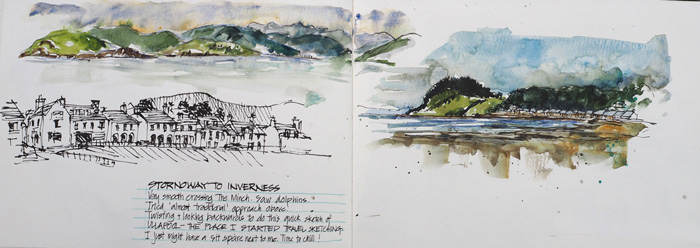 STORNOWAY TO INVERNESS
Very smooth crossing. The Minch. Saw dolphins. +
Tried 'almost traditional' approach above.
Twisting + looking backwards to do this quick sketch of
ULLAPOOL - THE PLACE I STARTED TRAVEL SKETCHING.
I just might have a sit spare next to me. Time to chill!